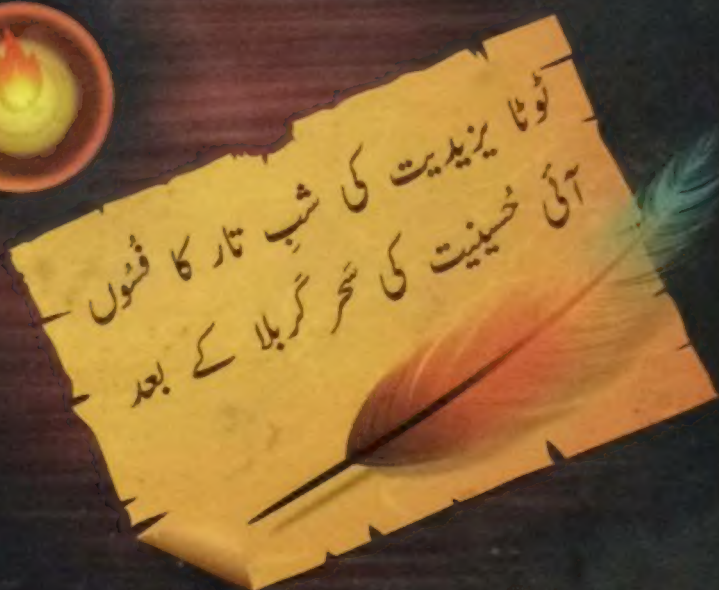 ٹوٹا یزیدیت کی شبِ تار کا فُسُوں
آئی حُسینیت کی سَحَر کَربلا کے بعد